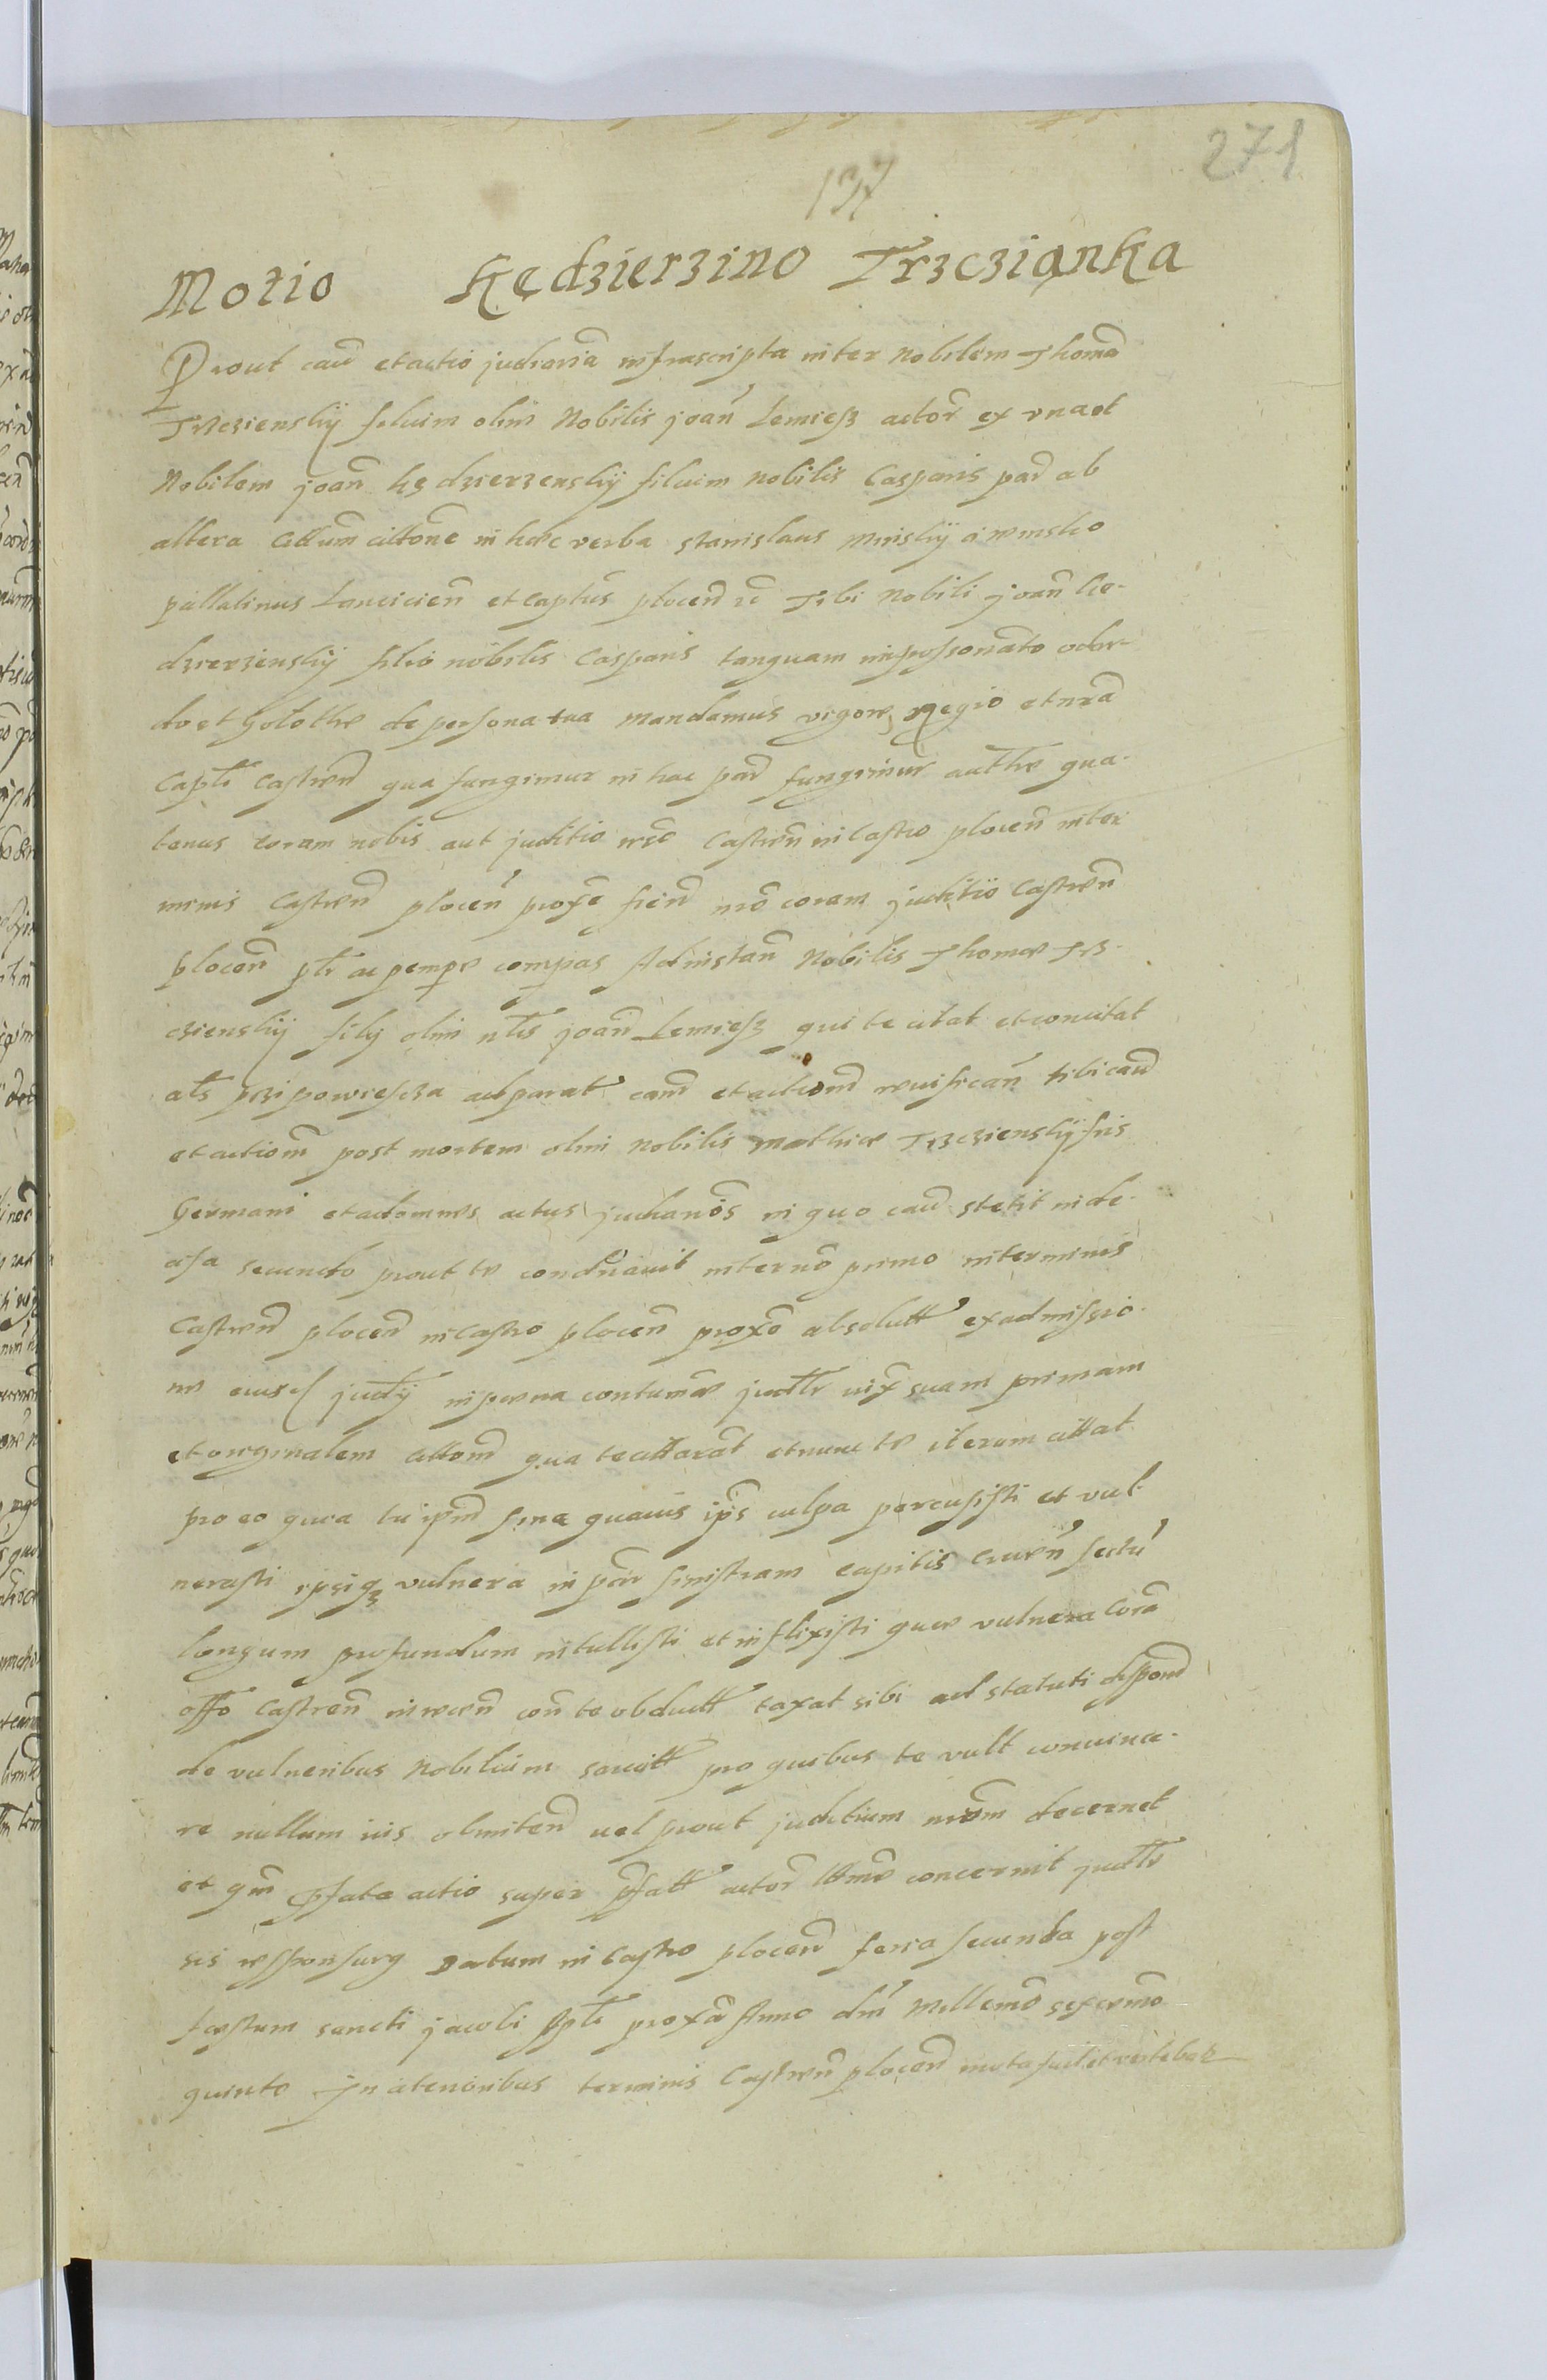 271
137
Motio Kędzierzino Trzcziąnka
Prout cau͠ et actio judiaria͠ infrascripta inter Nobilem Thoma͠
Trzczienskÿ filium olim Nobilis Joan͠ Lemiesz actor͠ ex vna et
Nobilem Joan͠ Kędzierzenskÿ filium nobilis Casparis par͠ ab
altera Cittum͠ cittone͠ in hæc verba Stanislaus Minskÿ a Minsko
pallatinus Lancicien͠ et Captus͠ plocen͠ Tibi Nobili Joan͠ Kę-
dzierzenskÿ filio nobilis Casparis tanquam impossionato
et hołothæ de persona tua Mandamus vigore Regio et nra͠
Capt͠ Castren͠ qua fungimur in hac par͠ fungimur autthe qua-
tenus coram nobis aut juditio nro͠ Castren͠ in Castro plocen͠ in ter
minis Castren͠ plocen͠ proxe͠ fien͠ nro͠ coram juditio Castren͠
plocen͠ ptr͠ ac pempe compas Ad instan͠ Nobilis Thomæ Trz-
czienskÿ filÿ olim nlis͠ Joan͠ Lemiesz qui te citat et concitat
als͠ przipowiescza ad parat͠ cam͠ et actiom͠ tibi cau͠
et actiom͠ post mortem olim Nobilis Mathiæ Trzczienskÿ fris
Germani et ad omnes actus judiarios͠ in quo cau͠ stetit inde-
cisa secundo prout te cond͠nauit in termo͠ primo in terminis
Castren͠ plocen͠ in Castro plocen͠ proxo͠ absolutt͠ ex admissio-
ne eiusd judÿ in pena contumæ judtr͠ iux͠ suam primam
et originalem cittom͠ qua te cittarat͠ et nunc te iterum cittat
pro eo quia tu ipm͠ sine quauis ips͠ culpa percusisti et vul
nerasti ipsiq vulnera in par͠ sinistram capitis Cruen͠ sectu͠
longum profundum intullisti et inflixisti quæ vulnera Cora͠
offo͠ Castren͠ con͠ te obductt͠ taxat sibi ad statuti dispom͠
de vulneribus Nobilium pro quibus te vult conuince-
re nullum ius obmiten͠ vel prout juditium nrom͠ decernet
et qm͠ pfata actio super pfatt͠ actor͠ concernit judtr͠
sis responsurg Datum in Castro plocen͠ feria secunda post
festum sancti Jacobi Apli͠ proxa͠ Anno dni͠ Millemo͠ sexcemo͠
quinto In atenoribus terminis Castren͠ plocen͠ mota fuit et vertebar